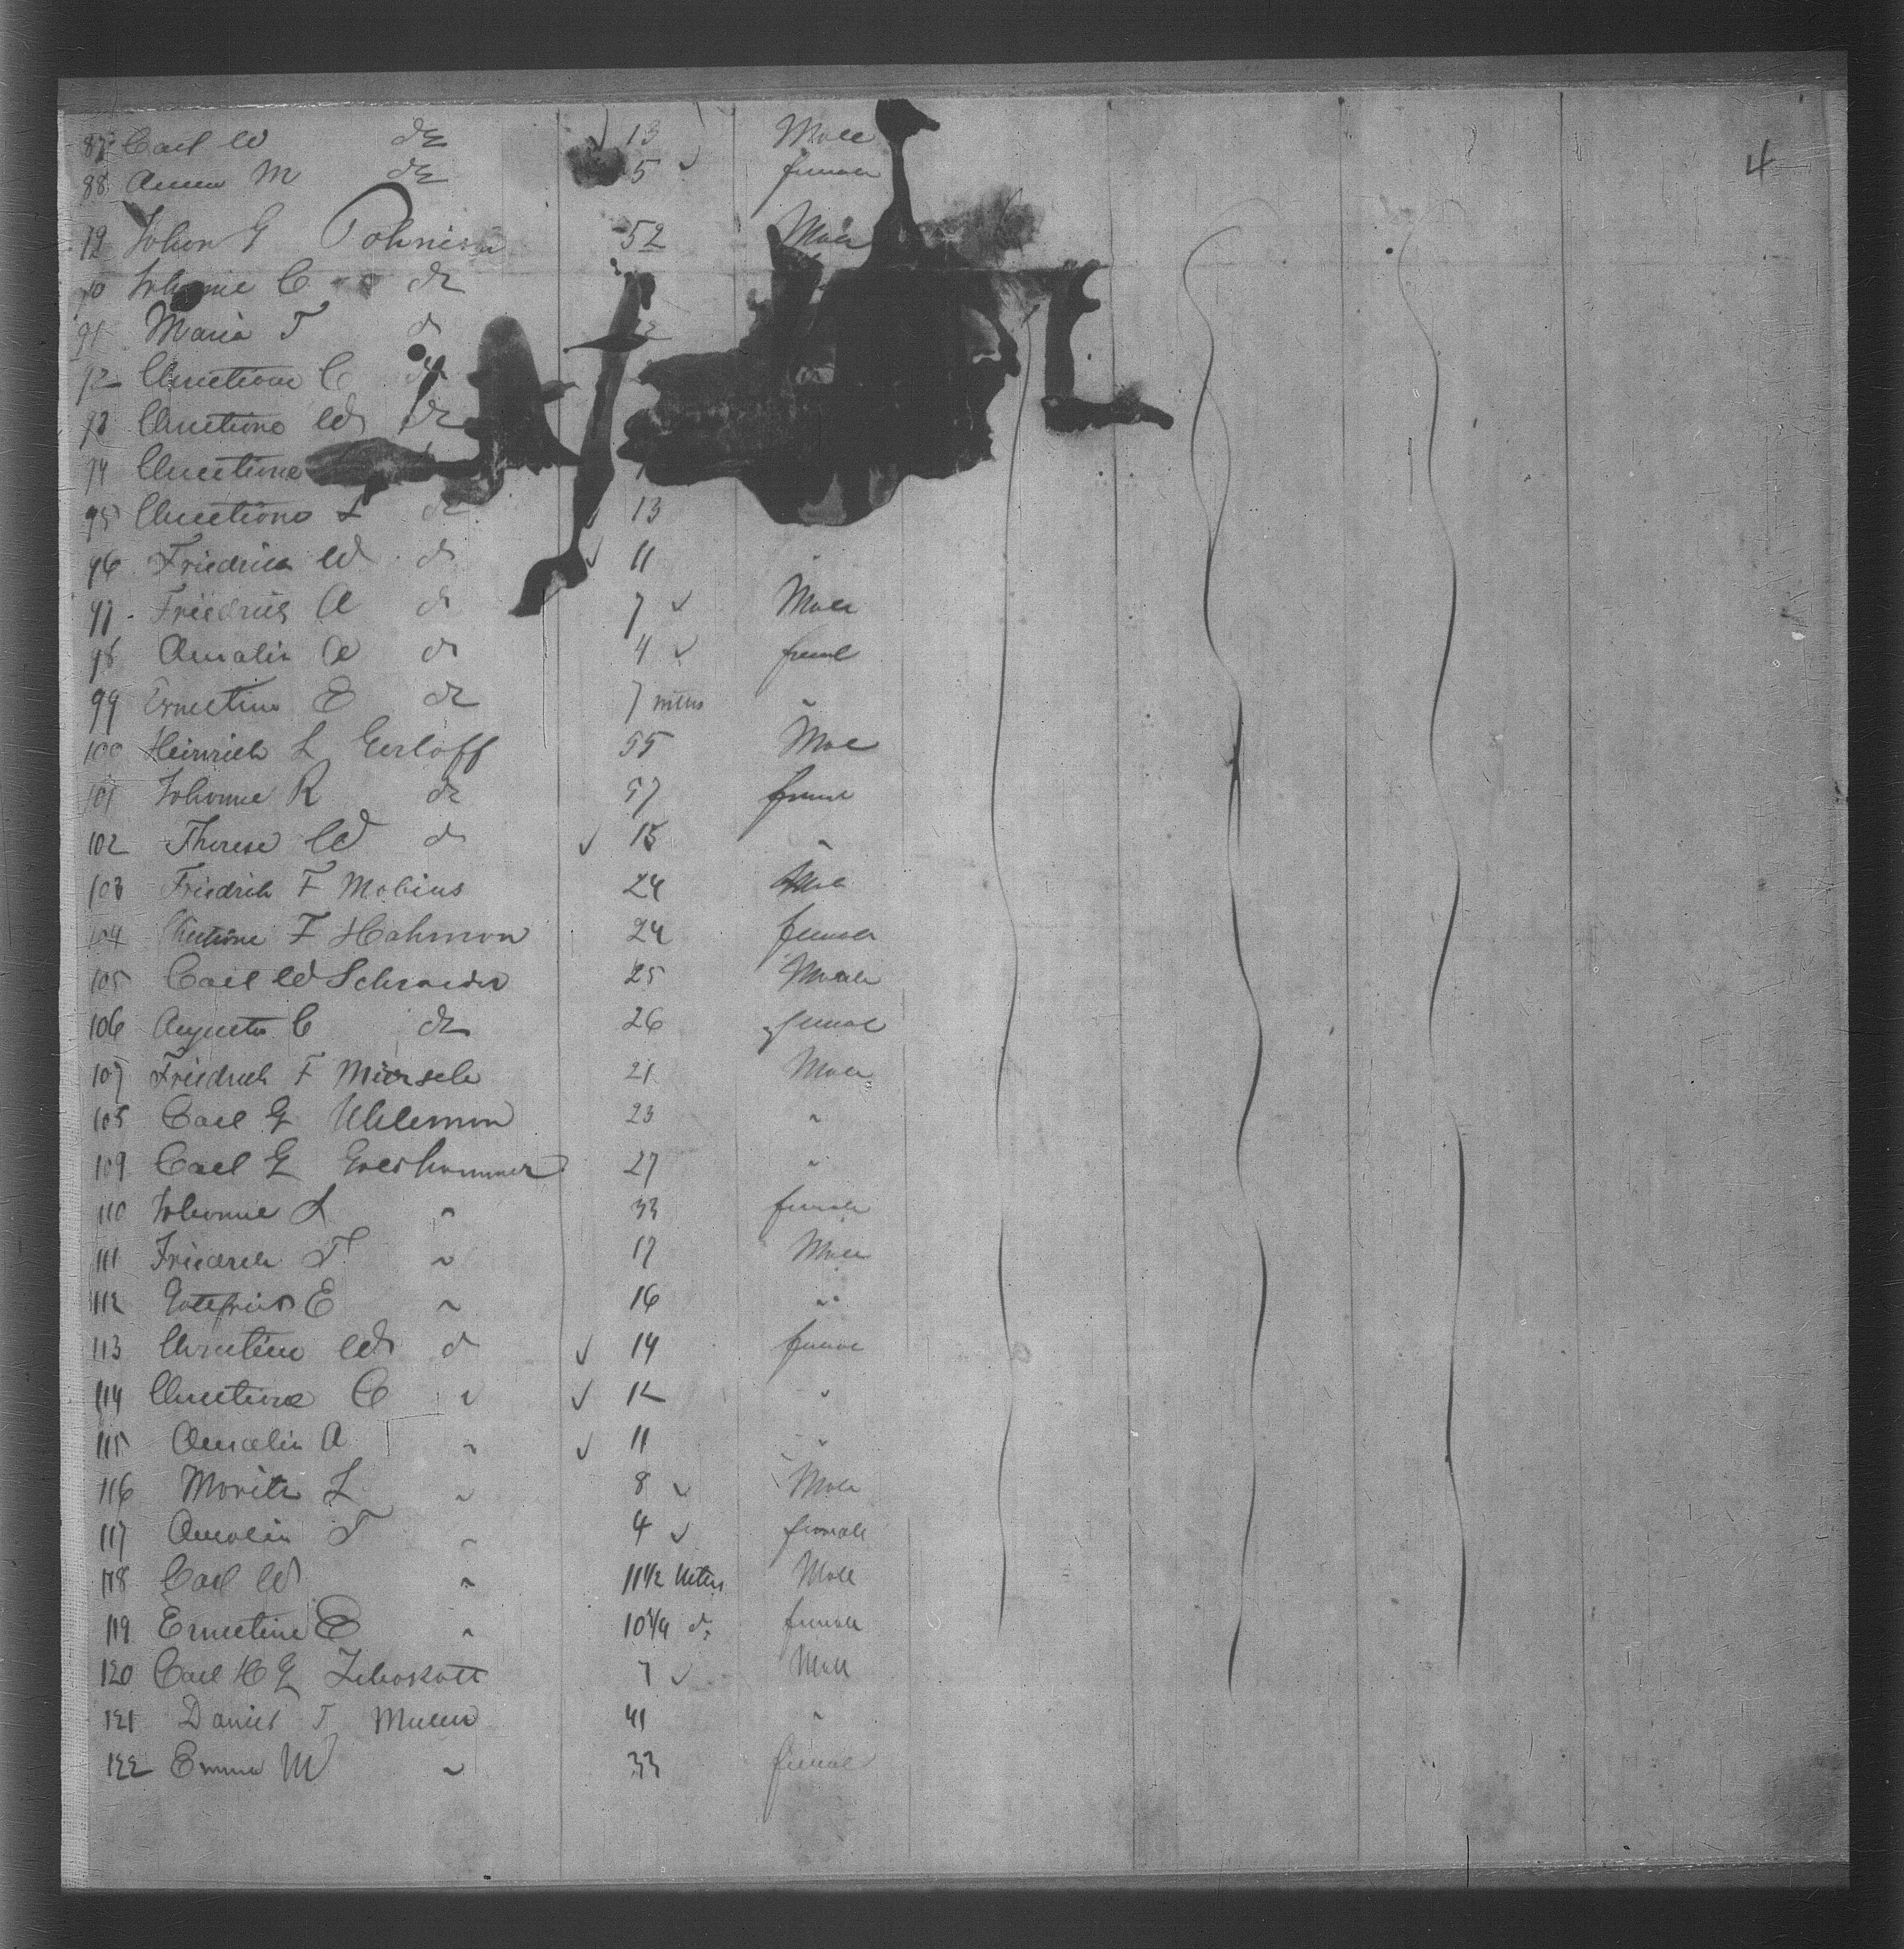 4
87 Carl W do 13 Male
88 Anna M do 5 female
89 Johan G Pohnisch 52 Male
90 Johanne C do
91 Maria T do
92 Christiane C do
93 Christiane W do
94 Christiane
95 Christiane L do 13
96 Friedrich W do 11 "
97 Friedrich A do 7 Male
98 Amalia A do 4 femal
99 Ernestine E do 7 mths "
100 Heinrich L Gerloff 55 Male
101 Johanne R do 57 female
102 Therese W do 15 "
103 Friedrich F Mobius 24 Male
104 Christiane F Hahman 24 female
105 Carl W Schraeder 25 Male
106 Augusta C do 26 female
107 Friedrich F Miersch 21 Male
108 Carl G Uhleman 23 "
109 Carl G 27 "
110 Johanne L " 33 female
111 Friedrich T " 17 Male
112 Gottfried E " 16 "
113 Christiane W do 14 female
114 Christiane C " 12 "
115 Amalia A " 11 "
116 Moritz L " 8 Male
117 Amalia T " 4 female
118 Carl W " 11 1/2 Male
119 Ernestine E " 10 3/4 do female
120 Carl H G 7 Male
121 Daniel T 41 "
122 Emma M " 33 female